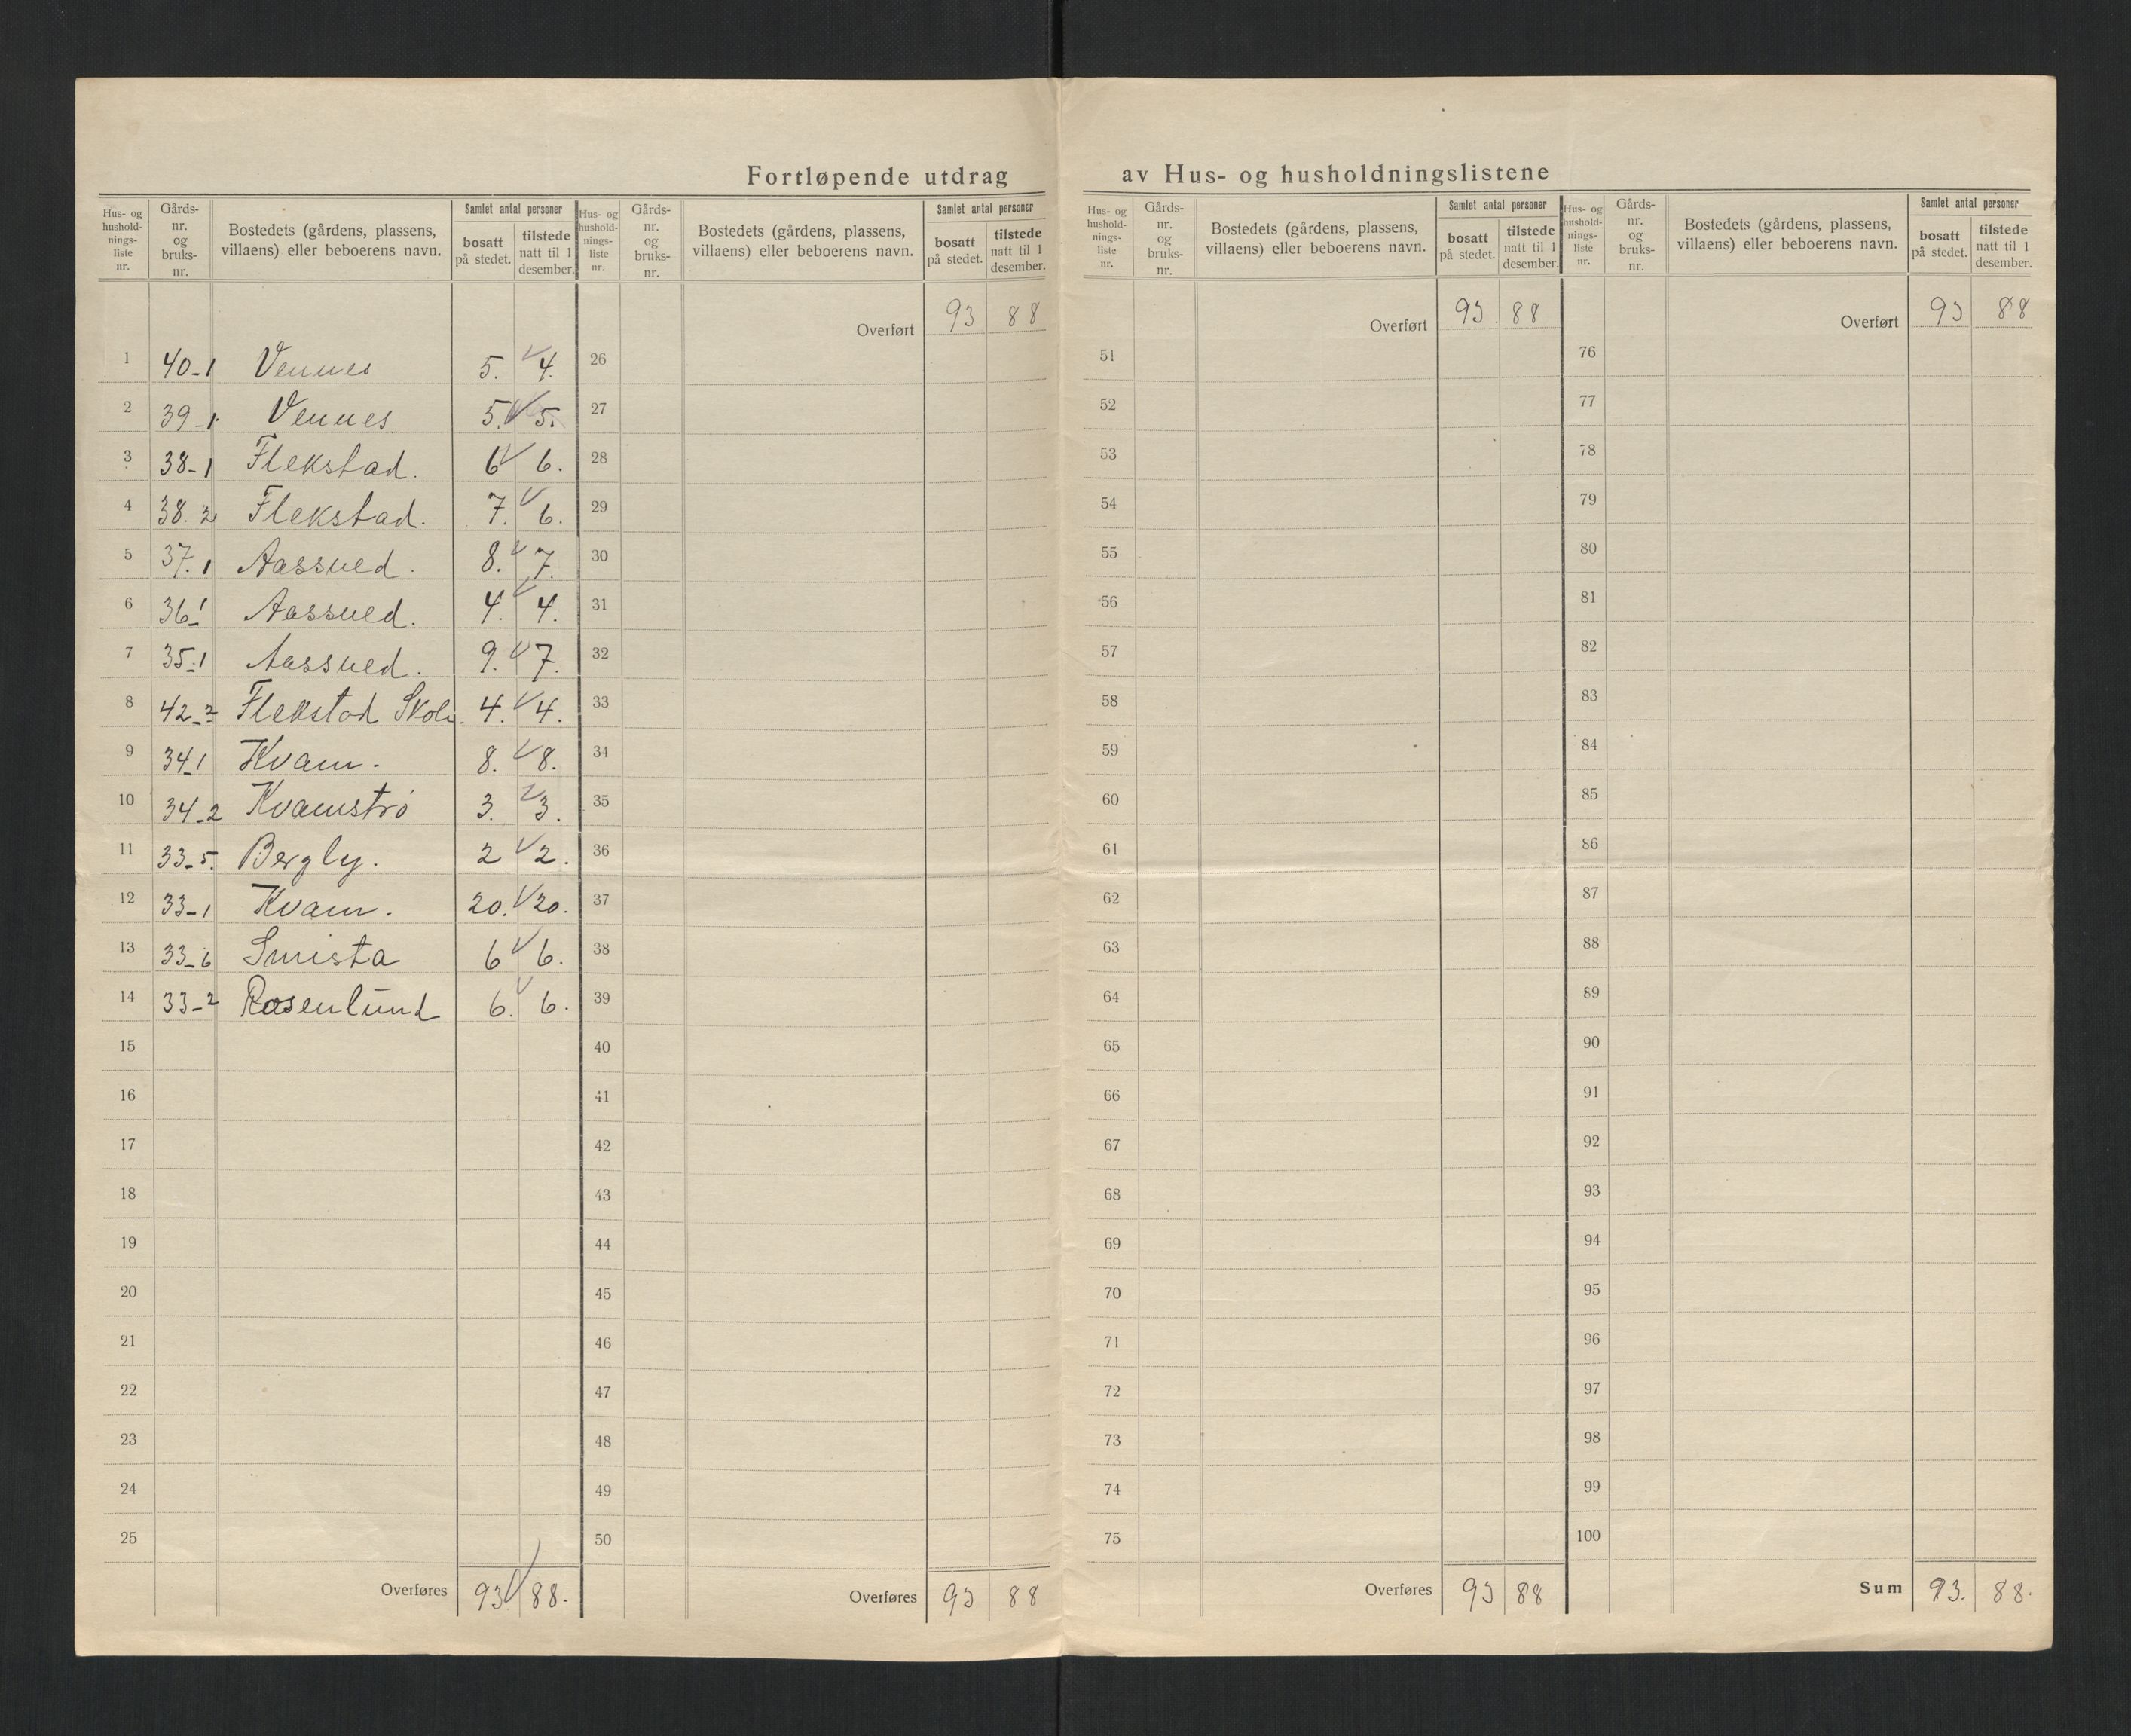 Fortløpende utdrag av Hus- og husholdningslistene
Hus- og hushold-nings-liste nr. Gårds-nr. og bruks-nr. Bostedets (gårdens, plassens, villaens) eller beboerens navn. Samlet antal personer bosatt på stedet. tilstede natt til 1 desember.
1 40-1 Vennes 5. 4.
2 39-1 Vennes. 5. 5.
3 38-1 Flekstad. 6 6.
4 38.2 Flekstad. 7. 6.
5 37.1 Aassved. 8. 7.
6 36-1 Aassved. 4. 4.
7 35-1 Aassved. 9. 7.
8 42-2 Flekstad Skole. 4. 4.
9 34-1 Kvam. 8. 8.
10 34-2 Kvamstrø 3. 3.
11 33-5. Bergly. 2 2.
12 33-1 Kvam. 20. 20.
13 33-6 Smista 6 6.
14 33-2 Rosenlund 6. 6.
15
16
17
18
19
20
21
22
23
24
25
Overføres 93 88.
Hus- og hushold-nings-liste nr. Gårds-nr. og bruks-nr. Bostedets (gårdens, plassens, villaens) eller beboerens navn. Samlet antal personer bosatt på stedet. tilstede natt til 1 desember.
Overført 93 88
26
27
28
29
30
31
32
33
34
35
36
37
38
39
40
41
42
43
44
45
46
47
48
49
50
Overføres 93 88
Hus- og hushold-nings-liste nr. Gårds-nr. og bruks-nr. Bostedets (gårdens, plassens, villaens) eller beboerens navn. Samlet antal personer bosatt på stedet. tilstede natt til 1 desember.
Overført 93 88
51
52
53
54
55
56
57
58
59
60
61
62
63
64
65
66
67
68
69
70
71
72
73
74
75
Overføres 93 88
Hus- og hushold-nings-liste nr. Gårds-nr. og bruks-nr. Bostedets (gårdens, plassens, villaens) eller beboerens navn. Samlet antal personer bosatt på stedet. tilstede natt til 1 desember.
Overført 93 88
76
77
78
79
80
81
82
83
84
85
86
87
88
89
90
91
92
93
94
95
96
97
98
99
100
Sum 93. 88.